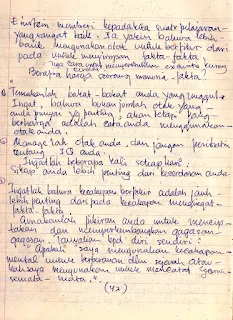 Einstein memberi kepada kita suatu pelajaran
yang sangat baik. Ia yakin bahwa lebih
baik mengunakan otak untuk berfikir dari
pada untuk menyimpan fakta-fakta.
Berapa harga seorang manusia - fakta?
Temukanlah bakat-bakat anda yang unggul.
Ingat, bahwa bukan jumlah otak yang
anda punyai yg penting, akan tetapi yang
berharga adalah cara anda menggunakan
otak anda.
Manage lah otak anda, dan jangan
tentang IQ anda.
Ingatlah beberapa kali setiap hari:
Sikap anda lebih penting dari kecerdasan anda.
Ingatlah bahwa kecakapan berfikir adalah jauh
lebih penting dari pada kecakapan mengingat
fakta-fakta.
Gunakanlah pikiran anda untuk mencip
takan dan memperkembangkan gagasan-
gagasan. Tanyakan kpd diri sendiri:
"Apakah saya mengunakan kecakapan
mental untuk berperanan dlm sejarah atau-
kah saya mengunakan untuk mencatat
semata-mata."
(42)